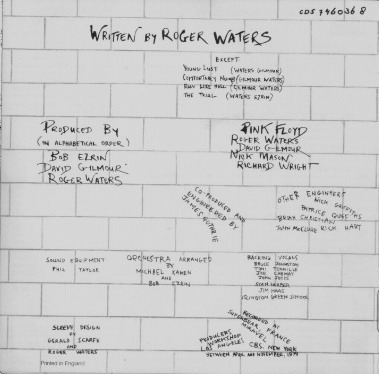 CDS 7460368
WRITTEN BY ROGER WATERS
EXCEPT
YOUNG LUST (WATERS GILMOUR)
COMFORTABLY NUMB (GILMOUR WATERS)
RUN LIKE HELL (GILMOUR WATERS)
THE TRIAL (WATERS EZRIN)
PRODUCED BY
(IN ALPHABETICAL ORDER)
BOB EZRIN
DAVID GILMOUR
ROGER WATERS
PINK FLOYD
ROGER WATERS
DAVID GILMOUR
NICK MASON
RICHARD WRIGHT
CO-PRODUCED AND
ENGINEERED BY
JAMES GUTHRIE
OTHER ENGINEERS
NICK GRIFFITHS
PATRICE QUEF
BRIAN CHRISTIAN
JOHN McCLURE RICK HART
SOUND EQUIPMENT
PHIL TAYLOR
ORCHESTRA ARRANGED
BY
MICHAEL KAMEN
AND
BOB EZRIN
BACKING VOCALS
BRUCE JOHNSTON
TONI TENNILLE
JOE CHEMAY
JOHN JOYCE
STAN FARBER
JIM HAAS
ISLINGTON GREEN SCHOOL
SLEEVE DESIGN
BY
GERALD SCARFE
AND
ROGER WATERS
RECORDED AT
SUPERBEAR, FRANCE
MIRAVAL
PRODUCERS WORKSHOP
LOS ANGELES CBS NEW YORK
BETWEEN APRIL AND NOVEMBER, 1979
Printed in England